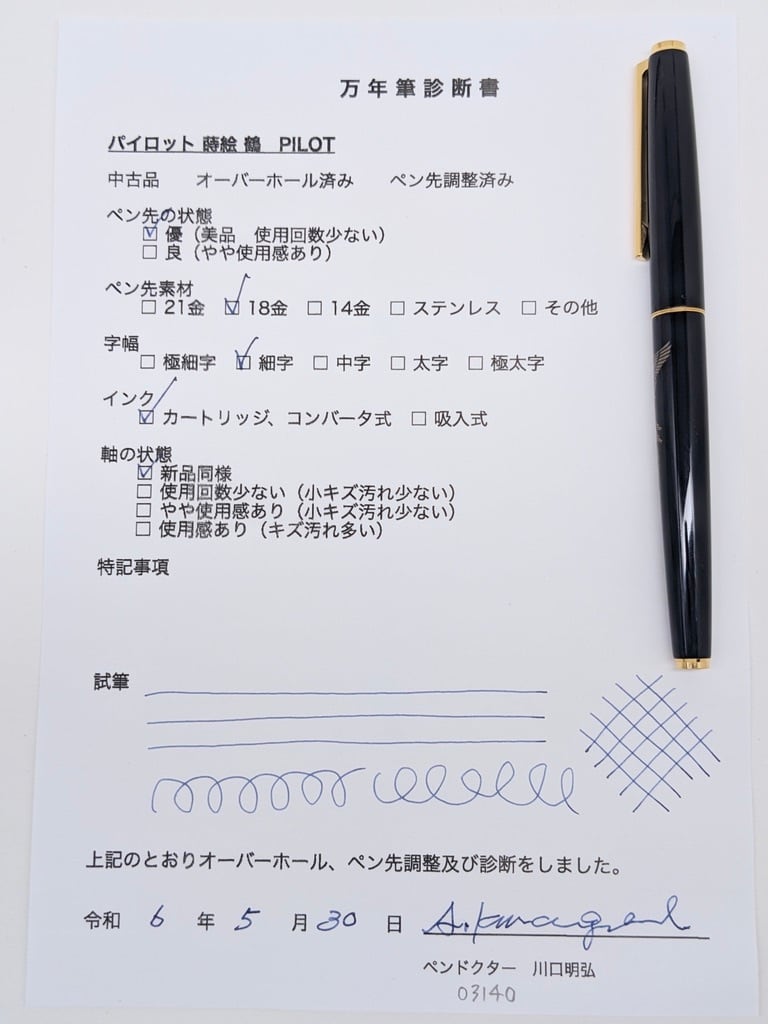 万年筆診断書
パイロット 蒔絵 鶴　PILOT
中古品　　オーバーホール済み　　ペン先調整済み
ペン先の状態
☑ 優（美品　使用回数少ない）
☐ 良（やや使用感あり）
ペン先素材
☐ 21金 ☑ 18金 ☐ 14金 ☐ ステンレス ☐ その他
字幅
☐ 極細字 ☑ 細字 ☐ 中字 ☐ 太字 ☐ 極太字
インク
☑ カートリッジ、コンバータ式 ☐ 吸入式
軸の状態
☑ 新品同様
☐ 使用回数少ない（小キズ汚れ少ない）
☐ やや使用感あり（小キズ汚れ少ない）
☐ 使用感あり（キズ汚れ多い）
特記事項
試筆
上記のとおりオーバーホール、ペン先調整及び診断をしました。
令和 6 年 5 月 30 日
ペンドクター　川口明弘
03140